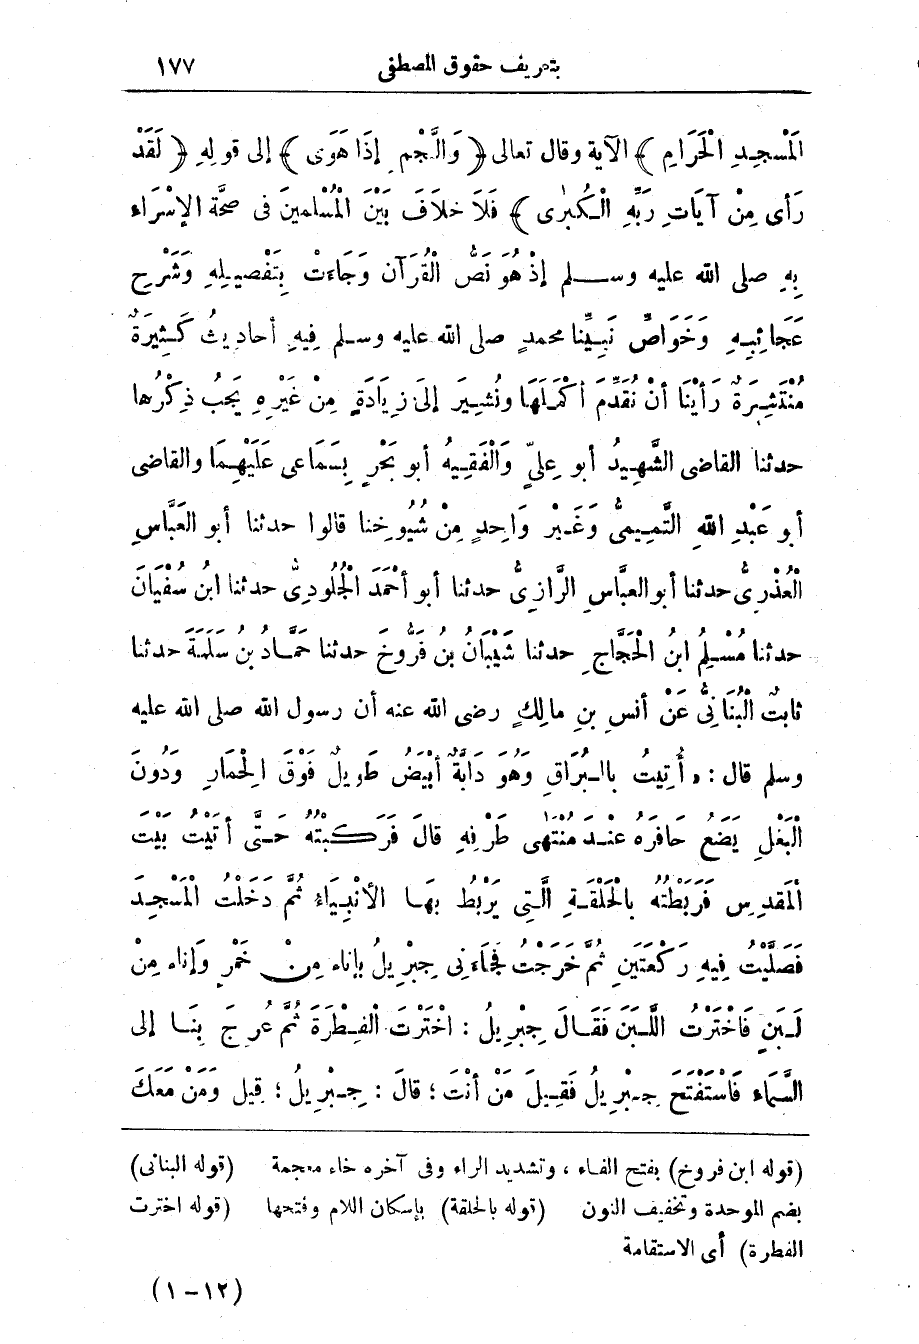 بتعريف حقوق المصطفى ١٧٧
الْمَسْجِدِ الْحَرَامِ ﴾ الآية وقال تعالى ﴿ وَالنَّجْمِ إِذَا هَوَى ﴾ إلى قولِهِ ﴿ لَقَدْ
رَأى مِنْ آيَاتِ رَبِّهِ الْكُبْرٰى ﴾ فَلَا خلَافَ بَيْنَ الْمُسْلمينَ فى صحَّة الإسْرَاء
بِهِ صلى الله عليه وسلم إذْ هُوَ نَصُّ الْقُرْآن وَجَاءَتْ بِتَفْصيلِهِ وَشَرْح
عَجَائِبِهِ وَخَوَاصِّ نَبِيِّنا محمدٍ صلى الله عليه وسلم فِيهِ أحاديثُ كَثِيرَةٌ
مُنْتَشِرَةٌ رَأَيْنَا أنْ نُقَدِّمَ أكْمَلَهَا ونُشِيرَ إلىَ زِيَادَةٍ مِنْ غَيْرِهِ يَجبُ ذِكْرُها
حدثنا القاضى الشَّهِيدُ أبو عِلىّ وَالْفَقِيهُ أبو بَحْرٍ بِسَمَاعى عَلَيْهِمَا والقاضى
أبو عَبْدِ اللهِ التَّمِيمىُّ وَغَيْر وَاحِدٍ مِنْ شُيُوخنا قالوا حدثنا أبو العَبَّاسِ
الْعُذْرِىُّ حدثنا أبو العبَّاسِ الرَّازِىُّ حدثنا أبو أحْمَدَ الْجُلُودِىُّ حدثنا ابنُ سُفْيَانَ
حدثنا مُسْلِمُ ابنُ الْحَجَّاجِ حدثنا شَيْبَانُ بن فَرُّوخَ حدثنا حَمَّادُ بن سَلَمَةَ حدثنا
ثابتٌ الْبُنَانِىُّ عَنْ أنسِ بنِ مالِكٍ رضى الله عنه أن رسول الله صلى الله عليه
وسلم قال : « أُتِيتُ بالبُرَاقِ وَهُوَ دَابَّةٌ أبْيَضُ طَوِيلٌ فَوْقَ الحِمَارِ وَدُونَ
الْبَغْلِ يَضَعُ حَافرَهُ عنْدَ مُنْتَهٰى طَرْفِهِ قالَ فَرَكِبْتُهُ حَتَّى أتَيْتُ بَيْتَ
الْمَقدِسِ فَرَبَطْتُهُ بالْحَلْقَةِ الَّتِى يَرْبُط بَهَا الأنْبِيَاءُ ثُمَّ دَخَلْتُ الْمَسْجدَ
فَصَلَّيْتُ فِيهِ رَكْعَتَينِ ثُمَّ خَرَجْتُ فَجَاءَنِى جِبْرِيلُ بإناء مِنْ خَمْرٍ وَإناء مِنْ
لَبَنٍ فَاخْتَرْتُ اللَّبَنَ فَقَالَ جِبْرِيلُ : اخْتَرْتَ الْفِطْرَةَ ثُمَّ عُرِجَ بِنَا إلى
السَّمَاء فَاسْتَفْتَحَ جِبْرِيلُ فَقِيلَ مَنْ أنْتَ ؛ قالَ : جِبْرِيلُ ؛ قِيل وَمَنْ مَعَكَ
(قوله ابن فروخ) بفتح الفاء ، وتشديد الراء وفى آخره خاء معجمة (قوله البنانى)
بضم الموحدة وتخفيف النون (قوله بالحلقة) بإسكان اللام وفتحها (قوله اخترت
الفطرة) أى الاستقامة
(١٢ – ١)